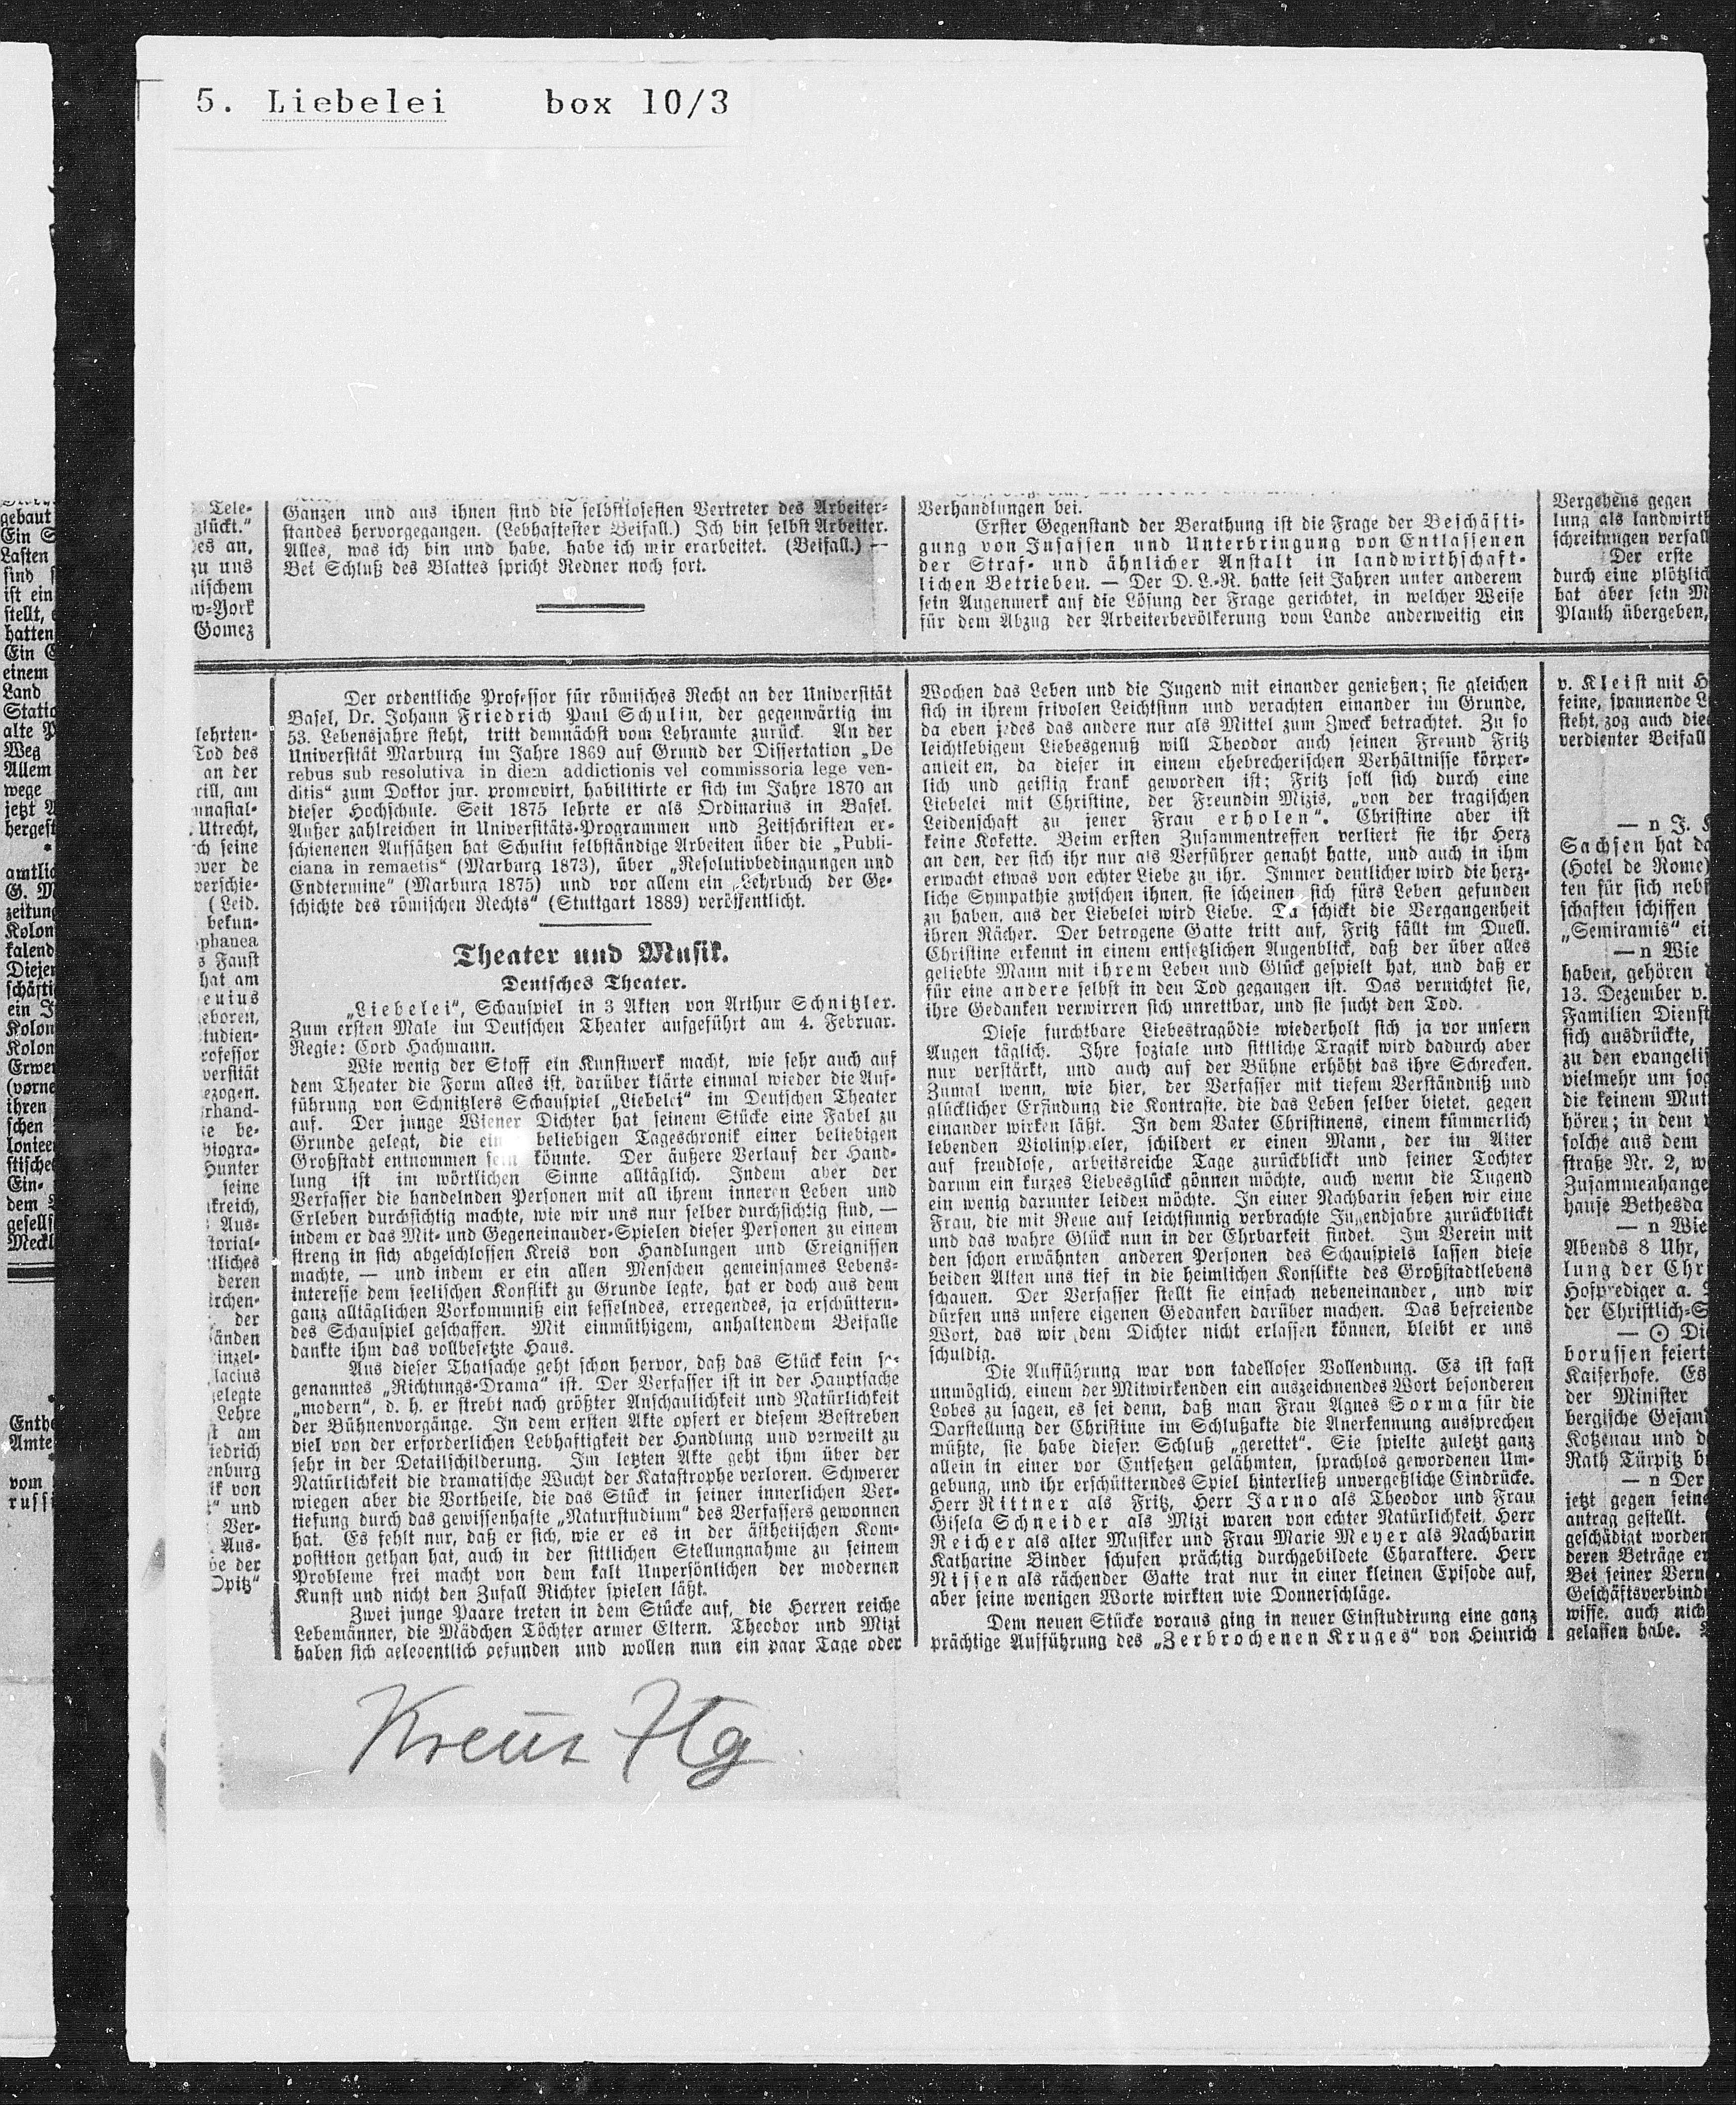 5. Liebelei box 10/3
gebaut
Lasten
sind
ist ein
stellt,
hatten
einem
Land
alte
Weg
Allem
wege
jetzt
hergest
amtlic
zeitung
Kolon
kalend
Dieje
schäfti
ein
Kolon
Kolon
ihren
schen
dem
gesells
Meckl
Amte
vom
russi
Tele-
glückt."
es an,
zu uns
nischem
w-York
Gomez
lehrten-
Tod des
an der
rill, am
mnasial-
Utrecht,
rch seine
over de
verschie-
(Leid.
bekun-
phanea
s Faust
hat am
euius
eboren,
tudien-
rofessor
versität
ezogen.
rhand-
te be-
biogra-
Hunter
seine
nkreich,
Aus-
torial-
tliches
deren
irchen-
der
änden
inzel-
lacius
elegte
Lehre
st am
iedrich
enburg
ik von
" und
Ver-
Aus-
be der
Opitz"
Ganzen und aus ihnen sind die selbstlosesten Vertreter des Arbeiter-
standes hervorgegangen. (Lebhaftester Beifall.) Ich bin selbst Arbeiter.
Alles, was ich bin und habe, habe ich mir erarbeitet. (Beifall.) —
Bei Schluß des Blattes spricht Redner noch fort.
Verhandlungen bei.
Erster Gegenstand der Berathung ist die Frage der Beschäfti-
gung von Insassen und Unterbringung von Entlassenen
der Straf- und ähnlicher Anstalt in landwirthschaft-
lichen Betrieben. — Der D. L.-R. hatte seit Jahren unter anderem
sein Augenmerk auf die Lösung der Frage gerichtet, in welcher Weise
für dem Abzug der Arbeiterbevölkerung vom Lande anderweitig ein
Vergehens gegen
lung als landwirth
schreitungen verfall
Der erste
durch eine plötzlich
hat aber sein M
Plauth übergeben,
Der ordentliche Professor für römisches Recht an der Universität
Basel, Dr. Johann Friedrich Paul Schulin, der gegenwärtig im
53. Lebensjahre steht, tritt demnächst vom Lehramte zurück. An der
Universität Marburg im Jahre 1869 auf Grund der Dissertation „De
rebus sub resolutiva in diem addictionis vel commissoria lege ven-
ditis" zum Doktor jur. promovirt, habilitirte er sich im Jahre 1870 an
dieser Hochschule. Seit 1875 lehrte er als Ordinarius in Basel.
Außer zahlreichen in Universitäts-Programmen und Zeitschriften er-
schienenen Aufsätzen hat Schulin selbständige Arbeiten über die „Publi-
ciana in remactis" (Marburg 1873), über „Resolutivbedingungen und
Endtermine" (Marburg 1875) und vor allem ein „Lehrbuch der Ge-
schichte des römischen Rechts" (Stuttgart 1889) veröffentlicht.
Theater und Musik.
Deutsches Theater.
„Liebelei", Schauspiel in 3 Akten von Arthur Schnitzler.
Zum ersten Male im Deutschen Theater aufgeführt am 4. Februar.
Regie: Cord Hachmann.
Wie wenig der Stoff ein Kunstwerk macht, wie sehr auch auf
dem Theater die Form alles ist, darüber klärte einmal wieder die Auf-
führung von Schnitzlers Schauspiel „Liebelei" im Deutschen Theater
auf. Der junge Wiener Dichter hat seinem Stücke eine Fabel zu
Grunde gelegt, die ein beliebigen Tageschronik einer beliebigen
Großstadt entnommen sein könnte. Der äußere Verlauf der Hand-
lung ist im wörtlichen Sinne alltäglich. Indem aber der
Verfasser die handelnden Personen mit all ihrem inneren Leben und
Erleben durchsichtig machte, wie wir uns nur selber durchsichtig sind, —
indem er das Mit- und Gegeneinander-Spielen dieser Personen zu einem
streng in sich abgeschlossen Kreis von Handlungen und Ereignissen
machte, — und indem er ein allen Menschen gemeinsames Lebens-
interesse dem seelischen Konflikt zu Grunde legte, hat er doch aus dem
ganz alltäglichen Vorkommniß ein fesselndes, erregendes, ja erschüttern-
des Schauspiel geschaffen. Mit einmüthigem, anhaltendem Beifalle
dankte ihm das vollbesetzte Haus.
Aus dieser Thatsache geht schon hervor, daß das Stück kein so-
genanntes „Richtungs-Drama" ist. Der Verfasser ist in der Hauptsache
„modern", d. h. er strebt nach größter Anschaulichkeit und Natürlichkeit
der Bühnenvorgänge. In dem ersten Akte opfert er diesem Bestreben
viel von der erforderlichen Lebhaftigkeit der Handlung und verweilt zu
sehr in der Detailschilderung. Im letzten Akte geht ihm über der
Natürlichkeit die dramatische Wucht der Katastrophe verloren. Schwerer
wiegen aber die Vortheile, die das Stück in seiner innerlichen Ver-
tiefung durch das gewissenhafte „Naturstudium" des Verfassers gewonnen
hat. Es fehlt nur, daß er sich, wie er es in der ästhetischen Kom-
position gethan hat, auch in der sittlichen Stellungnahme zu seinem
Probleme frei macht von dem kalt Unpersönlichen der modernen
Kunst und nicht den Zufall Richter spielen läßt.
Zwei junge Paare treten in dem Stücke auf, die Herren reiche
Lebemänner, die Mädchen Töchter armer Eltern. Theodor und Mizi
haben sich gelegentlich gefunden und wollen nun ein paar Tage oder
Wochen das Leben und die Jugend mit einander genießen; sie gleichen
sich in ihrem frivolen Leichtsinn und verachten einander im Grunde,
da eben jedes das andere nur als Mittel zum Zweck betrachtet. Zu so
leichtlebigem Liebesgenuß will Theodor auch seinen Freund Fritz
anleiten, da dieser in einem ehebrecherischen Verhältnisse körper-
lich und geistig krank geworden ist; Fritz soll sich durch eine
Liebelei mit Christine, der Freundin Mizis, „von der tragischen
Leidenschaft zu jener Frau erholen". Christine aber ist
keine Kokette. Beim ersten Zusammentreffen verliert sie ihr Herz
an den, der sich ihr nur als Verführer genaht hatte, und auch in ihm
erwacht etwas von echter Liebe zu ihr. Immer deutlicher wird die herz-
liche Sympathie zwischen ihnen, sie scheinen sich fürs Leben gefunden
zu haben, aus der Liebelei wird Liebe. Da schickt die Vergangenheit
ihren Rächer. Der betrogene Gatte tritt auf, Fritz fällt im Duell.
Christine erkennt in einem entsetzlichen Augenblick, daß der über alles
geliebte Mann mit ihrem Leben und Glück gespielt hat, und daß er
für eine andere selbst in den Tod gegangen ist. Das vernichtet sie,
ihre Gedanken verwirren sich unrettbar, und sie sucht den Tod.
Diese furchtbare Liebestragödie wiederholt sich ja vor unsern
Augen täglich. Ihre soziale und sittliche Tragik wird dadurch aber
nur verstärkt, und auch auf der Bühne erhöht das ihre Schrecken.
Zumal wenn, wie hier, der Verfasser mit tiefem Verständniß und
glücklicher Erfindung die Kontraste, die das Leben selber bietet, gegen
einander wirken läßt. In dem Vater Christinens, einem kümmerlich
lebenden Violinspieler, schildert er einen Mann, der im Alter
auf freudlose, arbeitsreiche Tage zurückblickt und seiner Tochter
darum ein kurzes Liebesglück gönnen möchte, auch wenn die Tugend
ein wenig darunter leiden möchte. In einer Nachbarin sehen wir eine
Frau, die mit Reue auf leichtsinnig verbrachte Jugendjahre zurückblickt
und das wahre Glück nun in der Ehrbarkeit findet. Im Verein mit
den schon erwähnten anderen Personen des Schauspiels lassen diese
beiden Alten uns tief in die heimlichen Konflikte des Großstadtlebens
schauen. Der Verfasser stellt sie einfach nebeneinander, und wir
dürfen uns unsere eigenen Gedanken darüber machen. Das befreiende
Wort, das wir dem Dichter nicht erlassen können, bleibt er uns
schuldig.
Die Aufführung war von tadelloser Vollendung. Es ist fast
unmöglich, einem der Mitwirkenden ein auszeichnendes Wort besonderen
Lobes zu sagen, es sei denn, daß man Frau Agnes Sorma für die
Darstellung der Christine im Schlußakte die Anerkennung aussprechen
müßte, sie habe diesen Schluß „gerettet". Sie spielte zuletzt ganz
allein in einer vor Entsetzen gelähmten, sprachlos gewordenen Um-
gebung, und ihr erschütterndes Spiel hinterließ unvergeßliche Eindrücke.
Herr Rittner als Fritz, Herr Jarno als Theodor und Frau
Gisela Schneider als Mizi waren von echter Natürlichkeit, Herr
Reicher als alter Musiker und Frau Marie Meyer als Nachbarin
Katharine Binder schufen prächtig durchgebildete Charaktere. Herr
Nissen als rächender Gatte trat nur in einer kleinen Episode auf,
aber seine wenigen Worte wirkten wie Donnerschläge.
Dem neuen Stücke voraus ging in neuer Einstudirung eine ganz
prächtige Aufführung des „Zerbrochenen Kruges" von Heinrich
v. Kleist mit H
feine, spannende L
steht, zog auch die
verdienter Beifall
— n J. K
Sachsen hat da
(Hotel de Rome)
ten für sich nebs
schaften schiffen
„Semiramis" ei
— n Wie
haben, gehören
13. Dezember v.
Familien Dienst
sich ausdrückte,
zu den evangelis
vielmehr um so
die keinem Mut
hören; in dem
solche aus dem
straße Nr. 2, w
Zusammenhange
hause Bethesda
— n Wie
Abends 8 Uhr,
lung der Chr
Hofprediger a.
der Christlich-S
— ⊙ Di
borussen feiert
Kaiserhofe. Es
der Minister
bergische Gesan
Kotzenau und d
Rath Türpitz b
— n Der
jetzt gegen seine
antrag gestellt.
geschädigt worden
deren Beträge er
Bei seiner Vern
Geschäftsverbind
wisse, auch nich
gelassen habe.
Kreuz Ztg